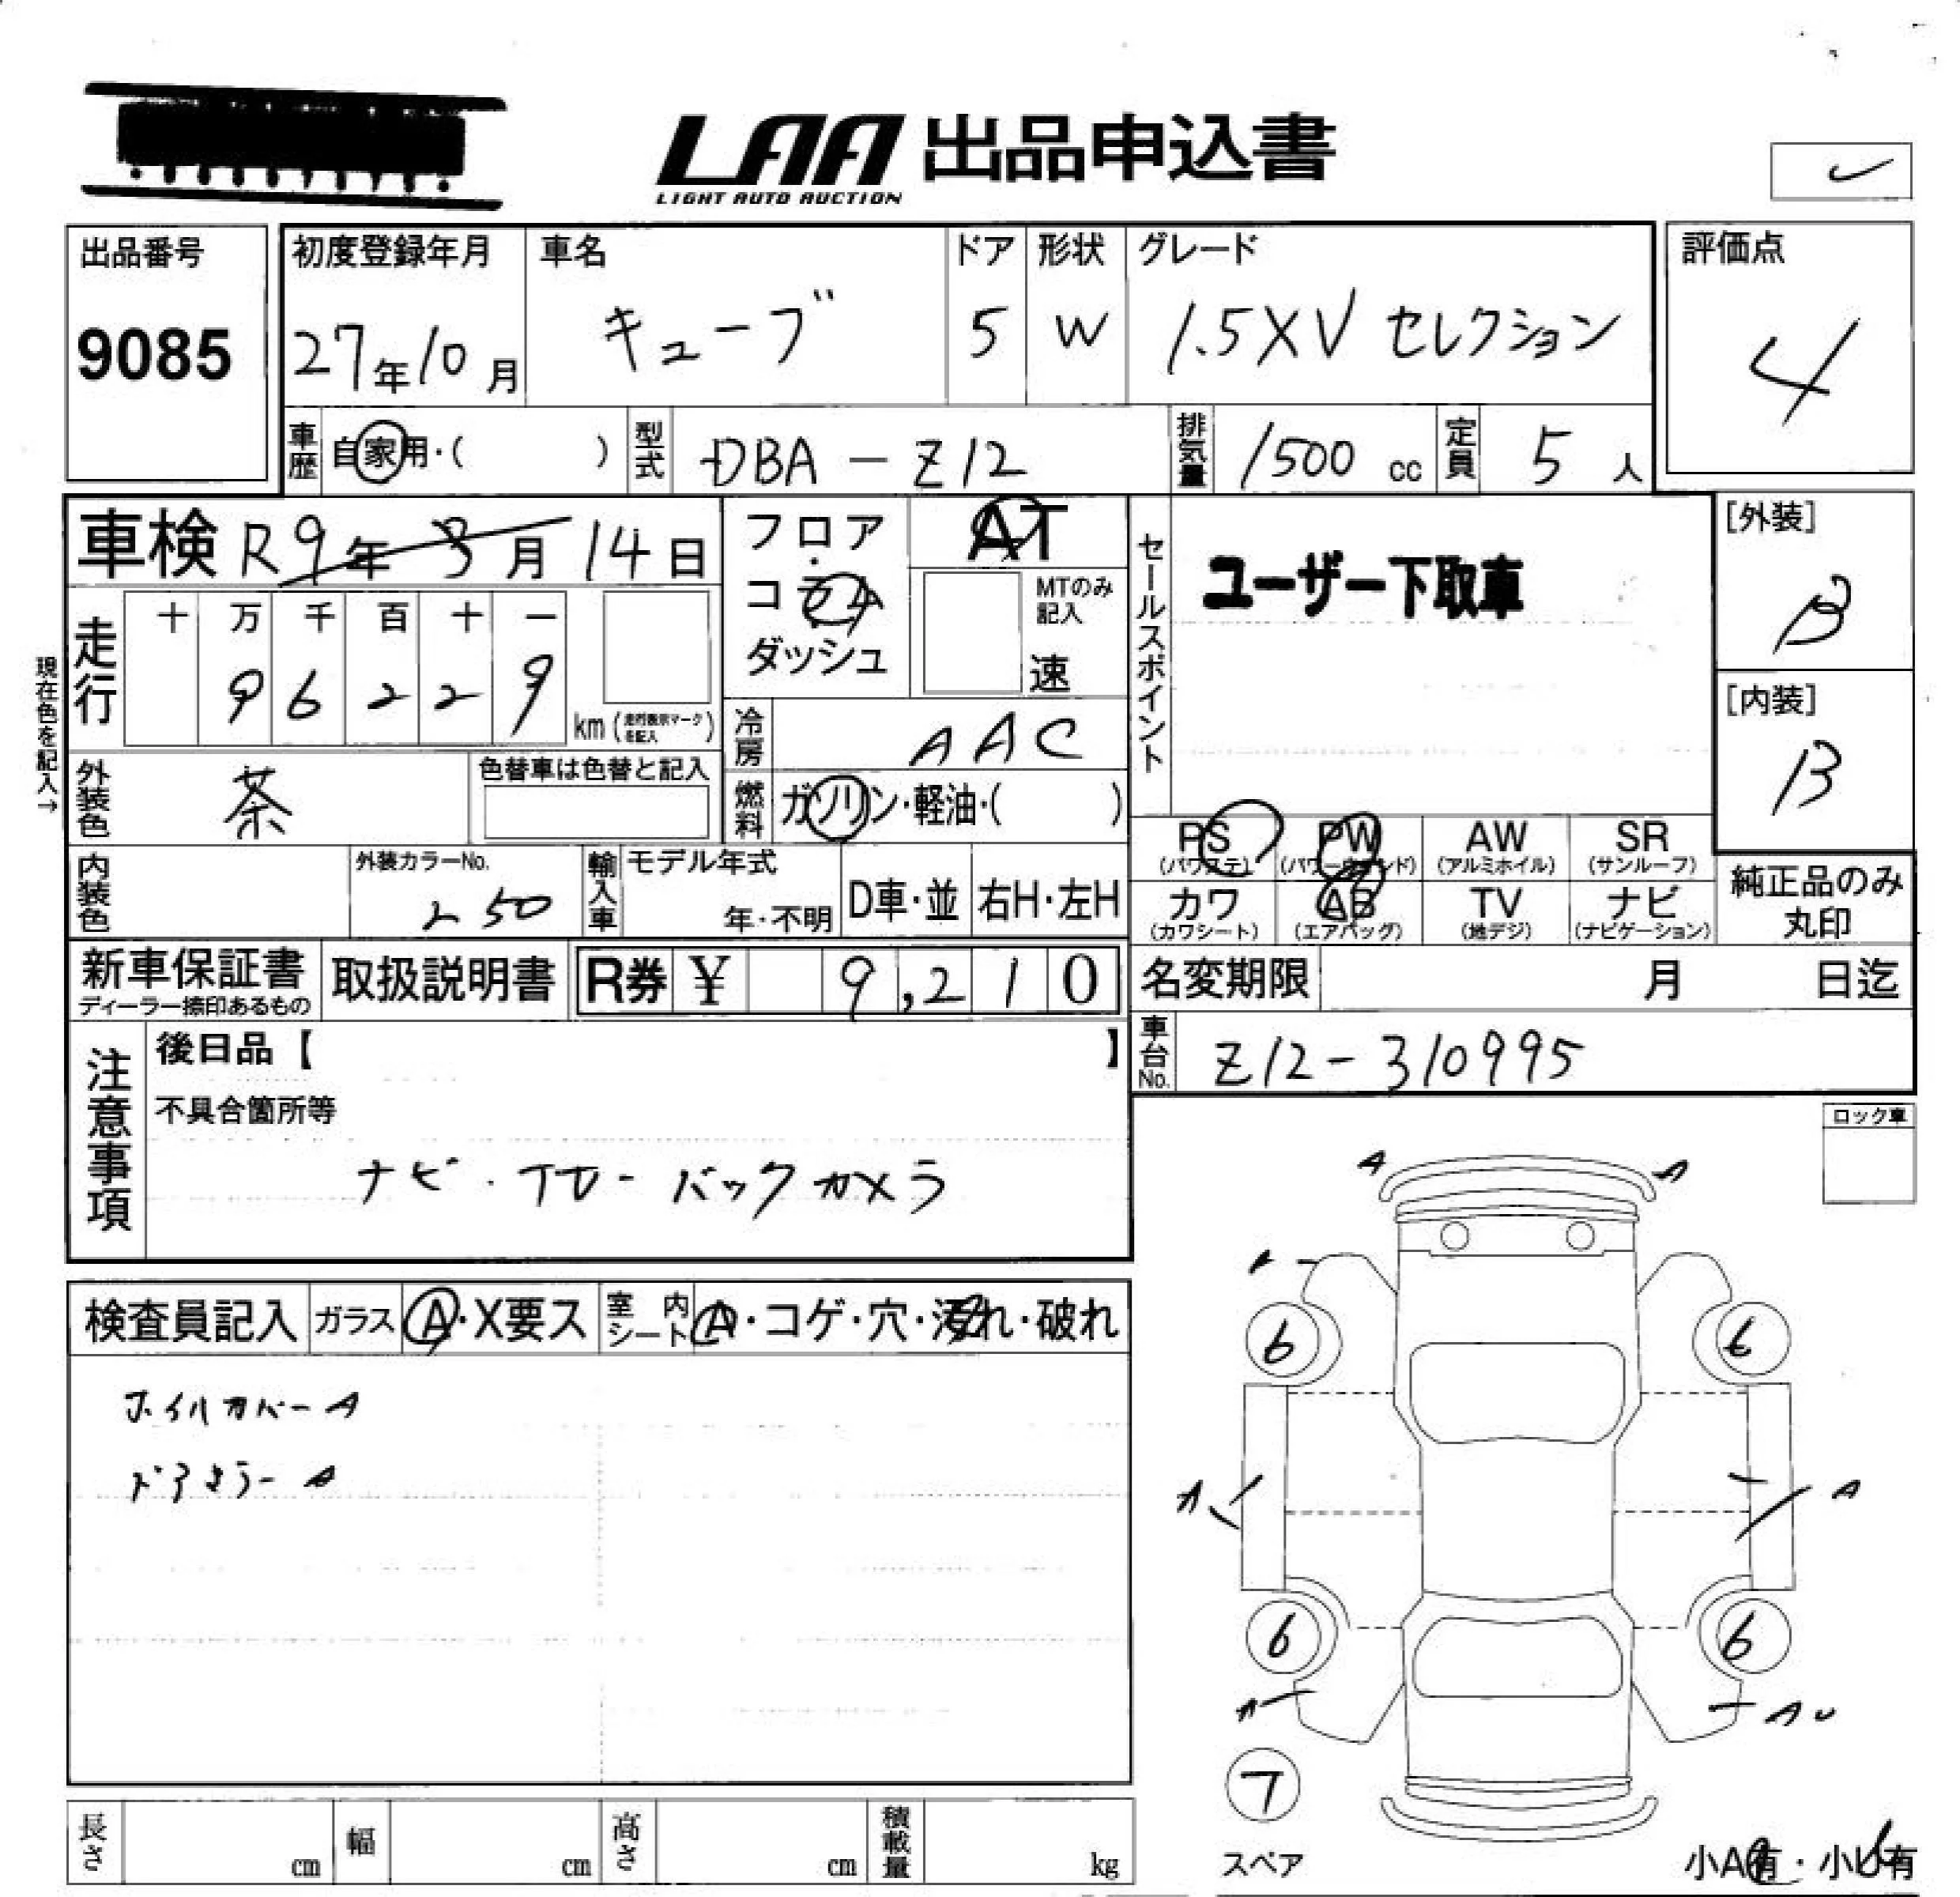 LAA 出品申込書
LIGHT AUTO AUCTION
出品番号
9085
初度登録年月
27年10月
車名
キューブ
ドア
5
形状
W
グレード
1.5XV セレクション
評価点
4
車歴 自家用・( )
型式 DBA-Z12
排気量 1500 cc
定員 5 人
車検 R9年3月14日
フロア・コラム・ダッシュ
AT
MTのみ記入
速
セールスポイント
ユーザー下取車
[外装]
B
[内装]
B
現在色を記入→
走行
十 万 千 百 十 一
9 6 2 2 9
km (走行表示マークを記入)
冷房 AAC
外装色 茶
色替車は色替と記入
燃料 ガソリン・軽油・( )
PS (パワステ)
PW (パワーウインド)
AW (アルミホイル)
SR (サンルーフ)
カワ (カワシート)
AB (エアバッグ)
TV (地デジ)
ナビ (ナビゲーション)
純正品のみ丸印
内装色
外装カラーNo.
250
輸入車
モデル年式
年・不明
D車・並
右H・左H
新車保証書
ディーラー捺印あるもの
取扱説明書
R券 ¥ 9,210
名変期限 月 日迄
車台No. Z12-310995
注意事項
後日品【 】
不具合箇所等
ナビ・TV-バックカメラ
ロック車
A A
検査員記入
ガラス A・X要ス
室内シート A・コゲ・穴・汚れ・破れ
ホイルカバーA
ドアミラーA
6 6
A A
6 6
A AU
7
スペア
小A有・小U有
長さ cm
幅 cm
高さ cm
積載量 kg